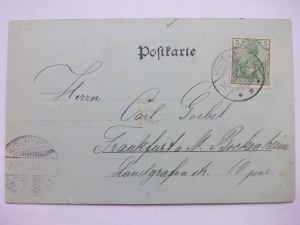 Postkarte
Herrn
Carl Goebel
Frankfurt a. M. Bockenheim
Landgrafenstr. 10